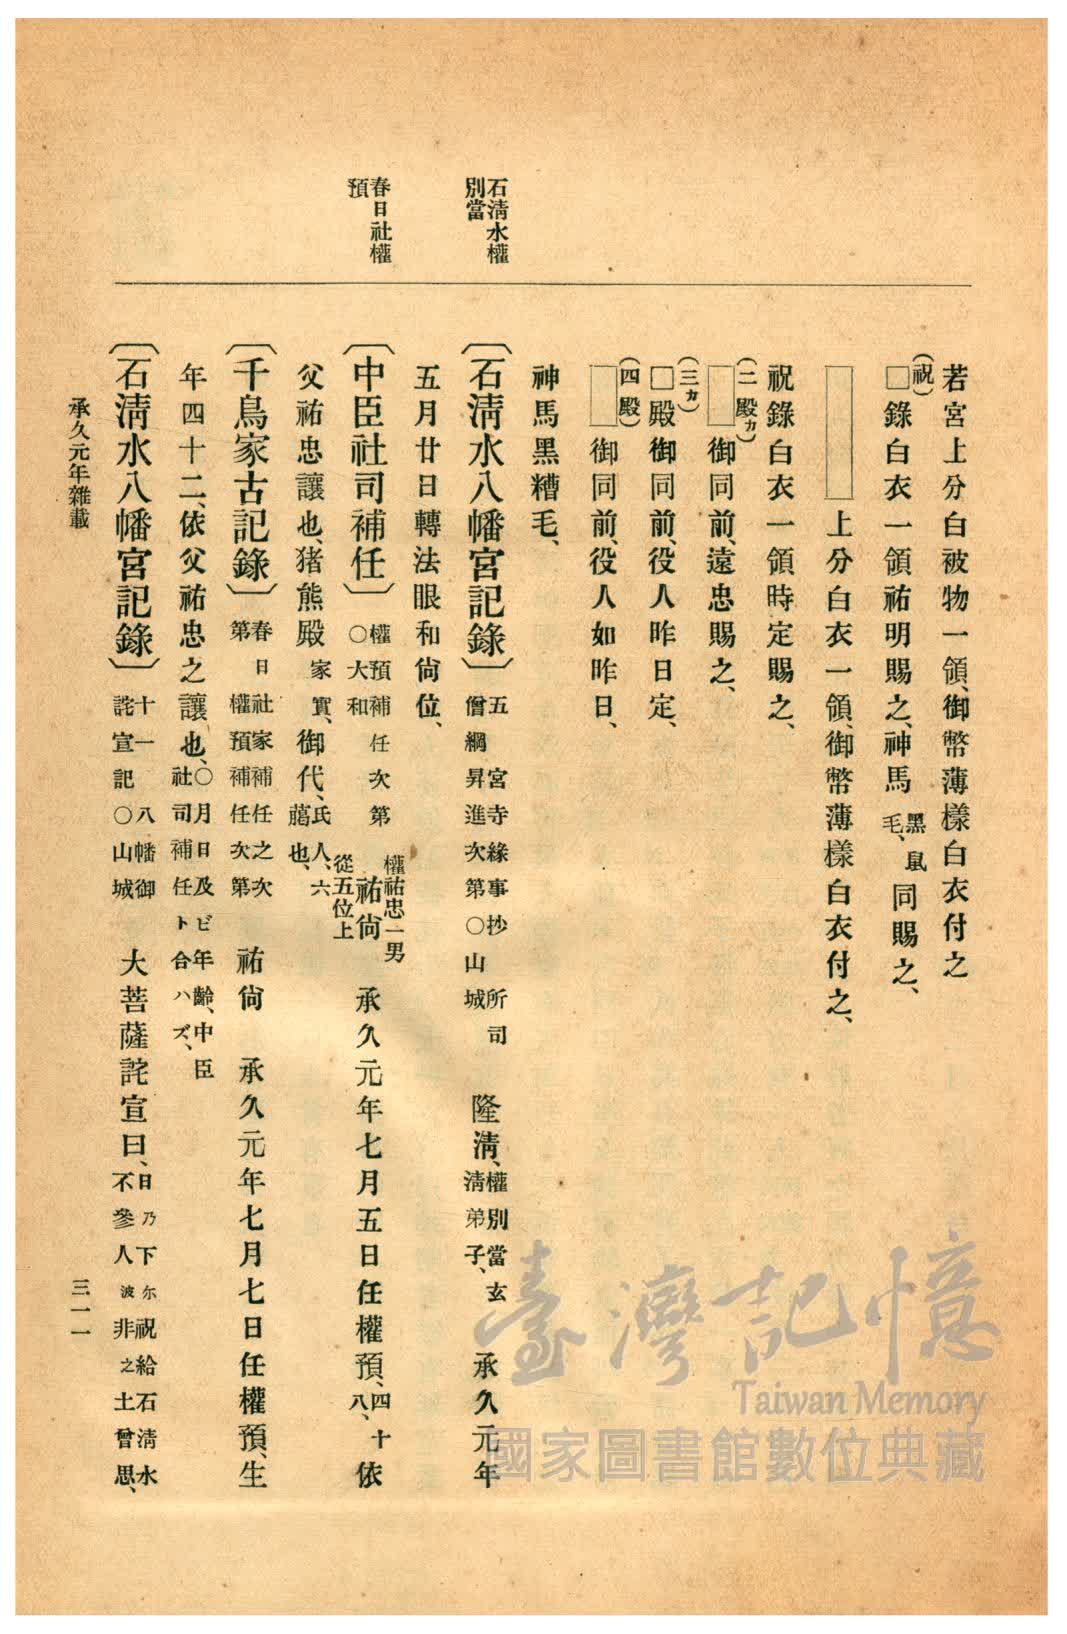 石淸水權
別當
春日社權
預
若宮上分白被物一領、御幣薄樣白衣付之
(祝)
□錄白衣一領祐明賜之、神馬黑鼠毛、同賜之、
□上分白衣一領、御幣薄樣白衣付之、
祝錄白衣一領時定賜之、
(二殿カ)
□御同前、遠忠賜之、
(三カ)
□殿御同前、役人昨日定、
(四殿)
□御同前、役人如昨日、
神馬黑糟毛、
〔石淸水八幡宮記錄〕五 宮寺緣事抄 所司僧綱昇進次第○山城 隆淸、權別當玄淸弟子、 承久元年
五月廿日轉法眼和尙位、
〔中臣社司補任〕權預補任次第○大和 權祐忠一男 祐尙 從五位上 承久元年七月五日任權預、四十八、依
父祐忠讓也、猪熊殿家實、御代、氏人、六﨟也、
〔千鳥家古記錄〕春日社家補任之次第 權預補任次第 祐尙 承久元年七月七日任權預、生
年四十二、依父祐忠之讓也、○月日及ビ年齡、中臣社司補任ト合ハズ、
〔石淸水八幡宮記錄〕十一 八幡御詫宣記○山城 大菩薩詫宣曰、日乃下尔祝給石淸水不參人波非之土曾思、
承久元年雜載
三一一
臺灣記憶
Taiwan Memory
國家圖書館數位典藏